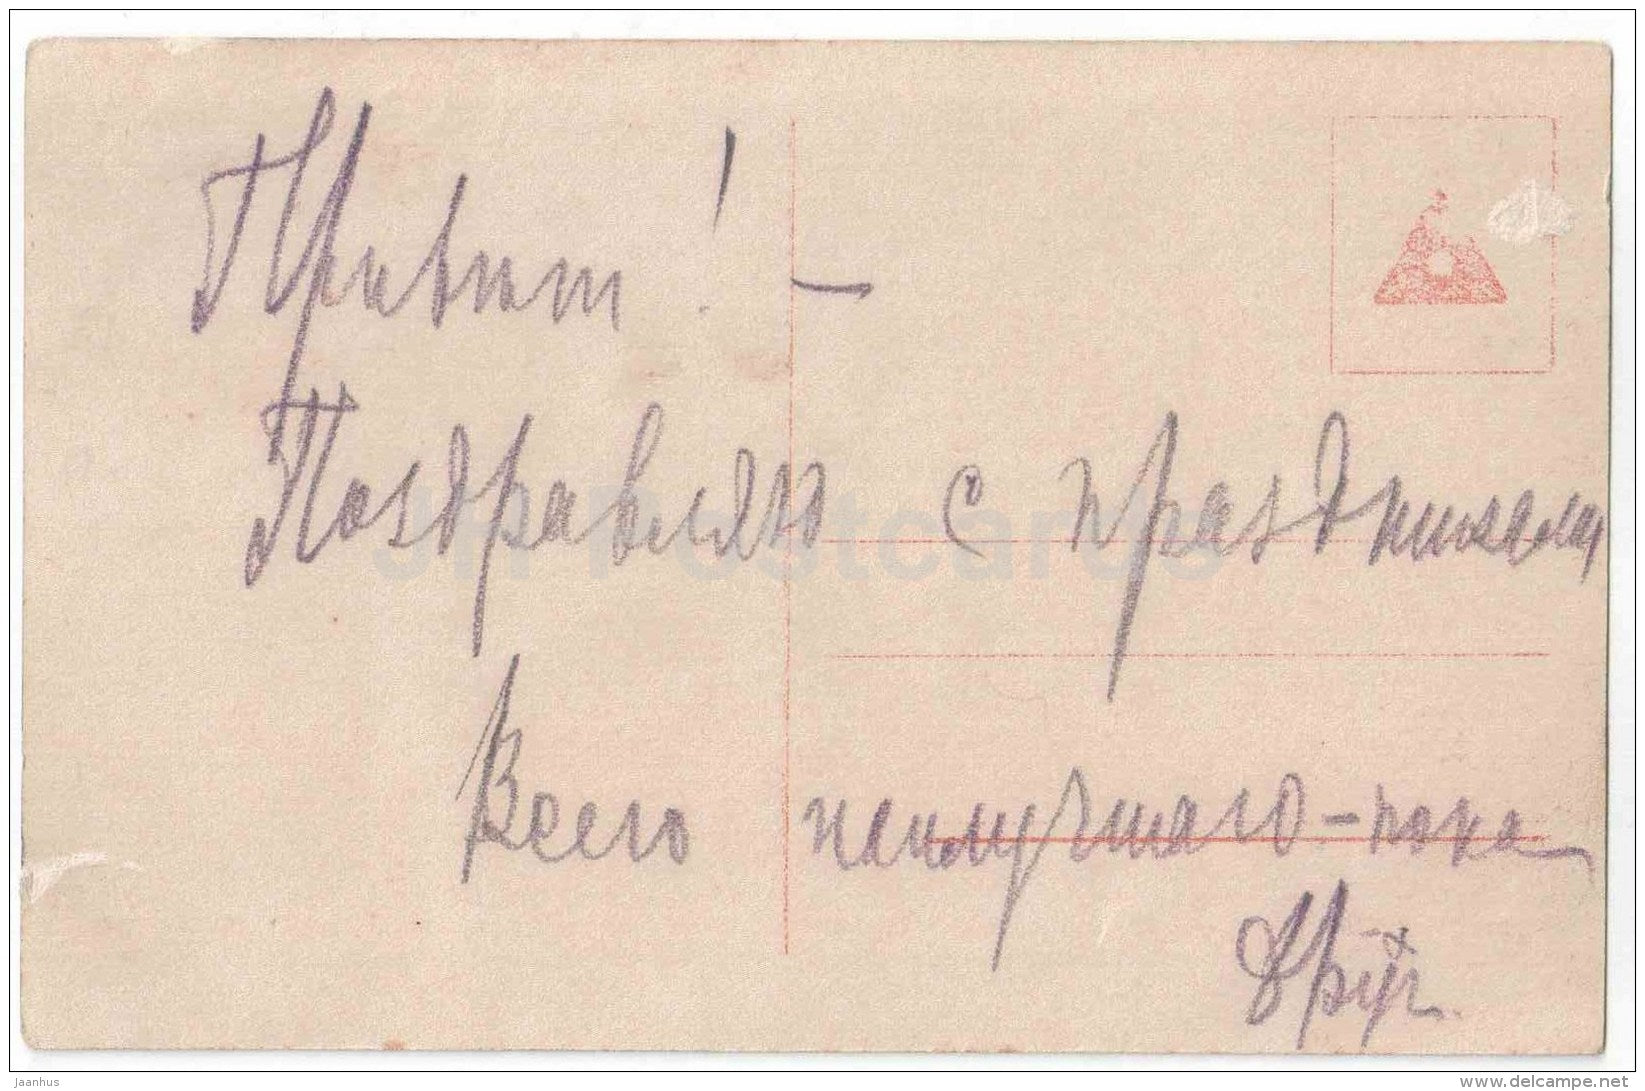 Привет! –
Поздравляю с праздниками
Всего наилучшаго – пока
JH Postcards
jaanhus
www.delcampe.net